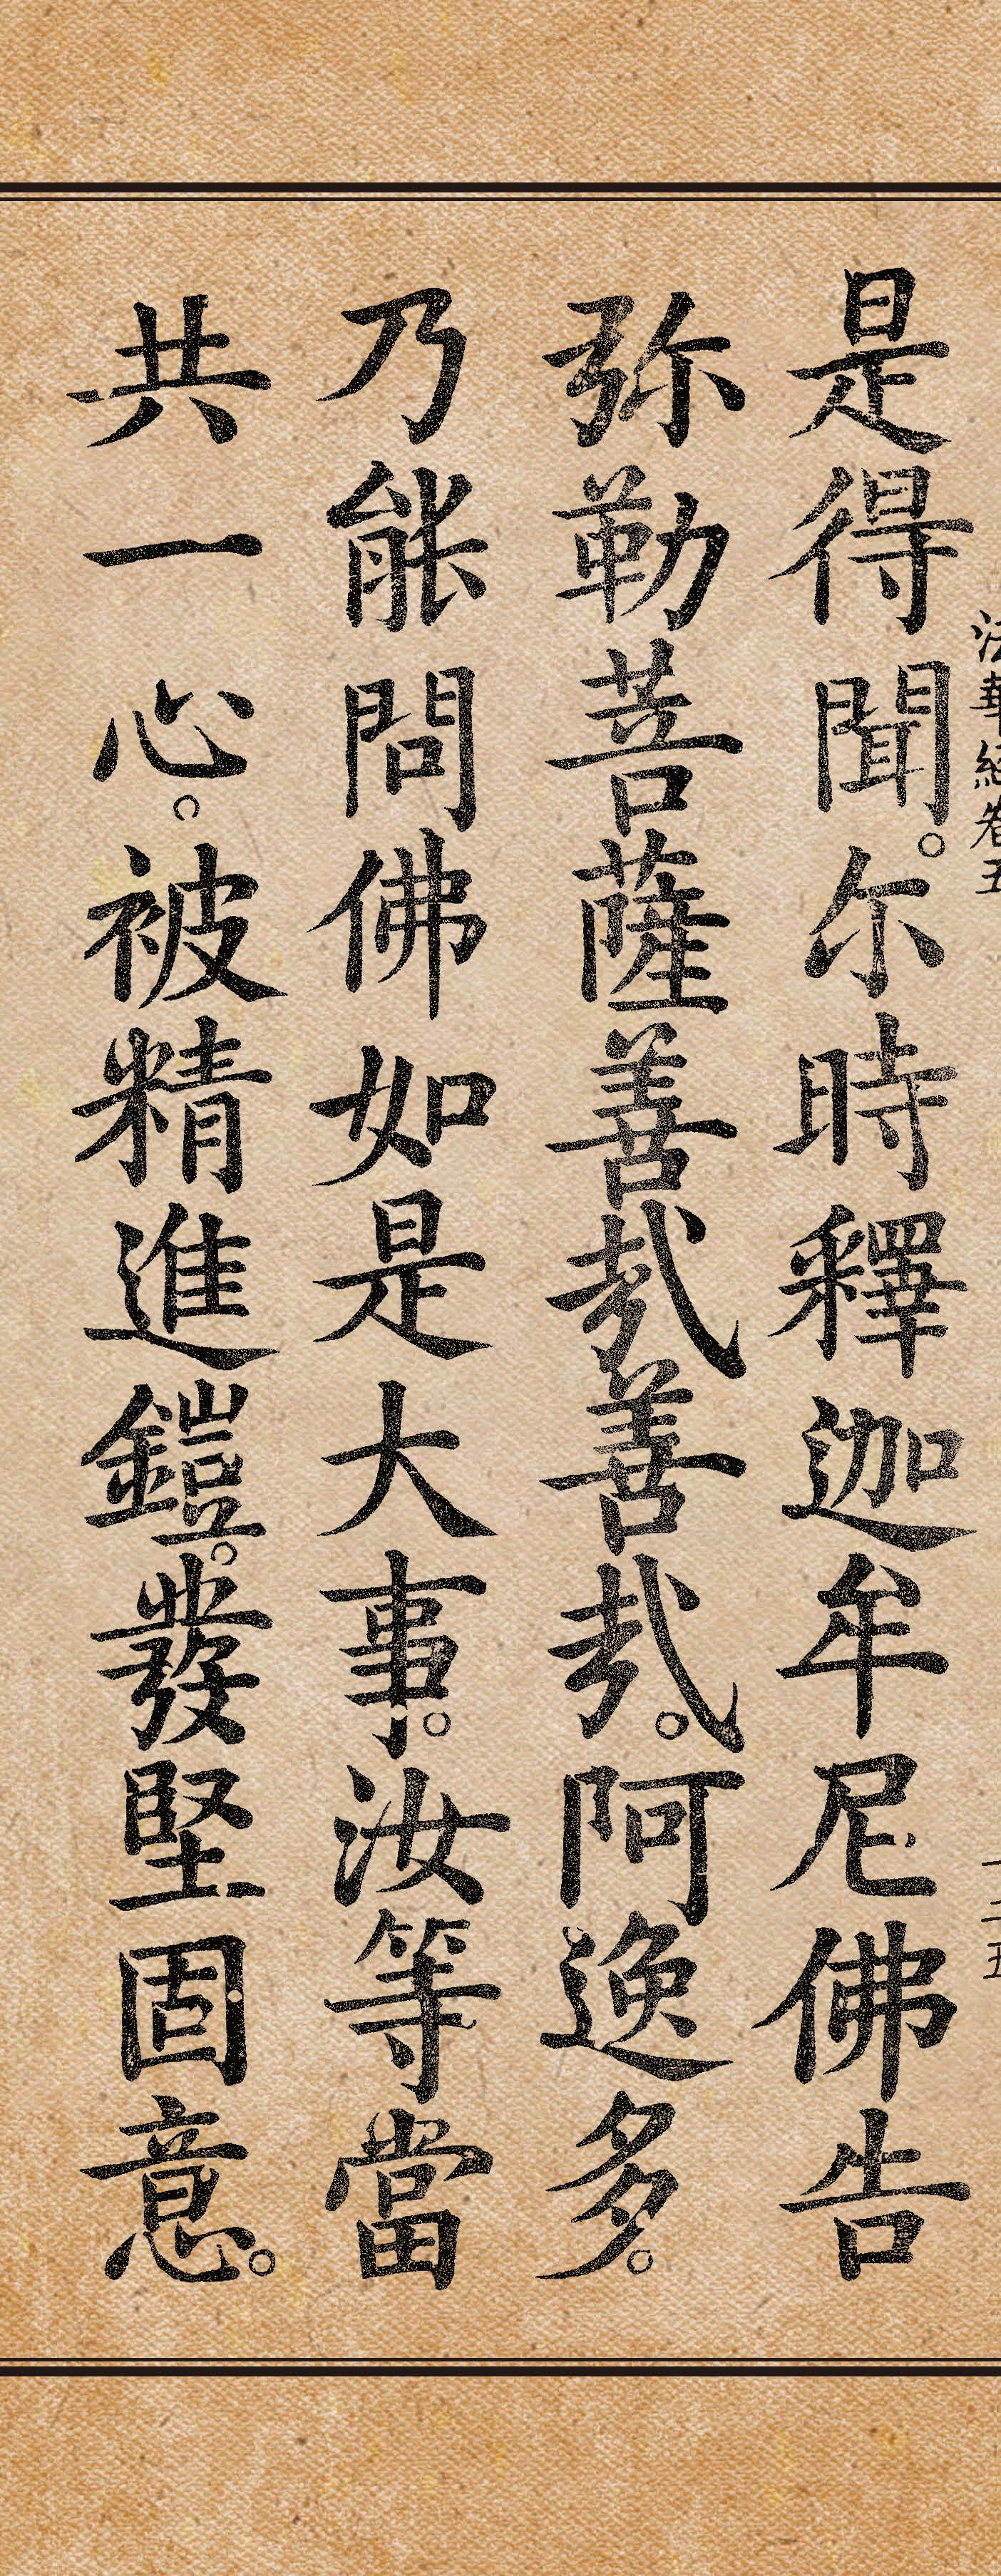 法華經卷五
一二五
是得聞。尒時釋迦牟尼佛告
弥勒菩薩善哉善哉。阿逸多。
乃能問佛如是大事。汝等當
共一心。被精進鎧。發堅固意。